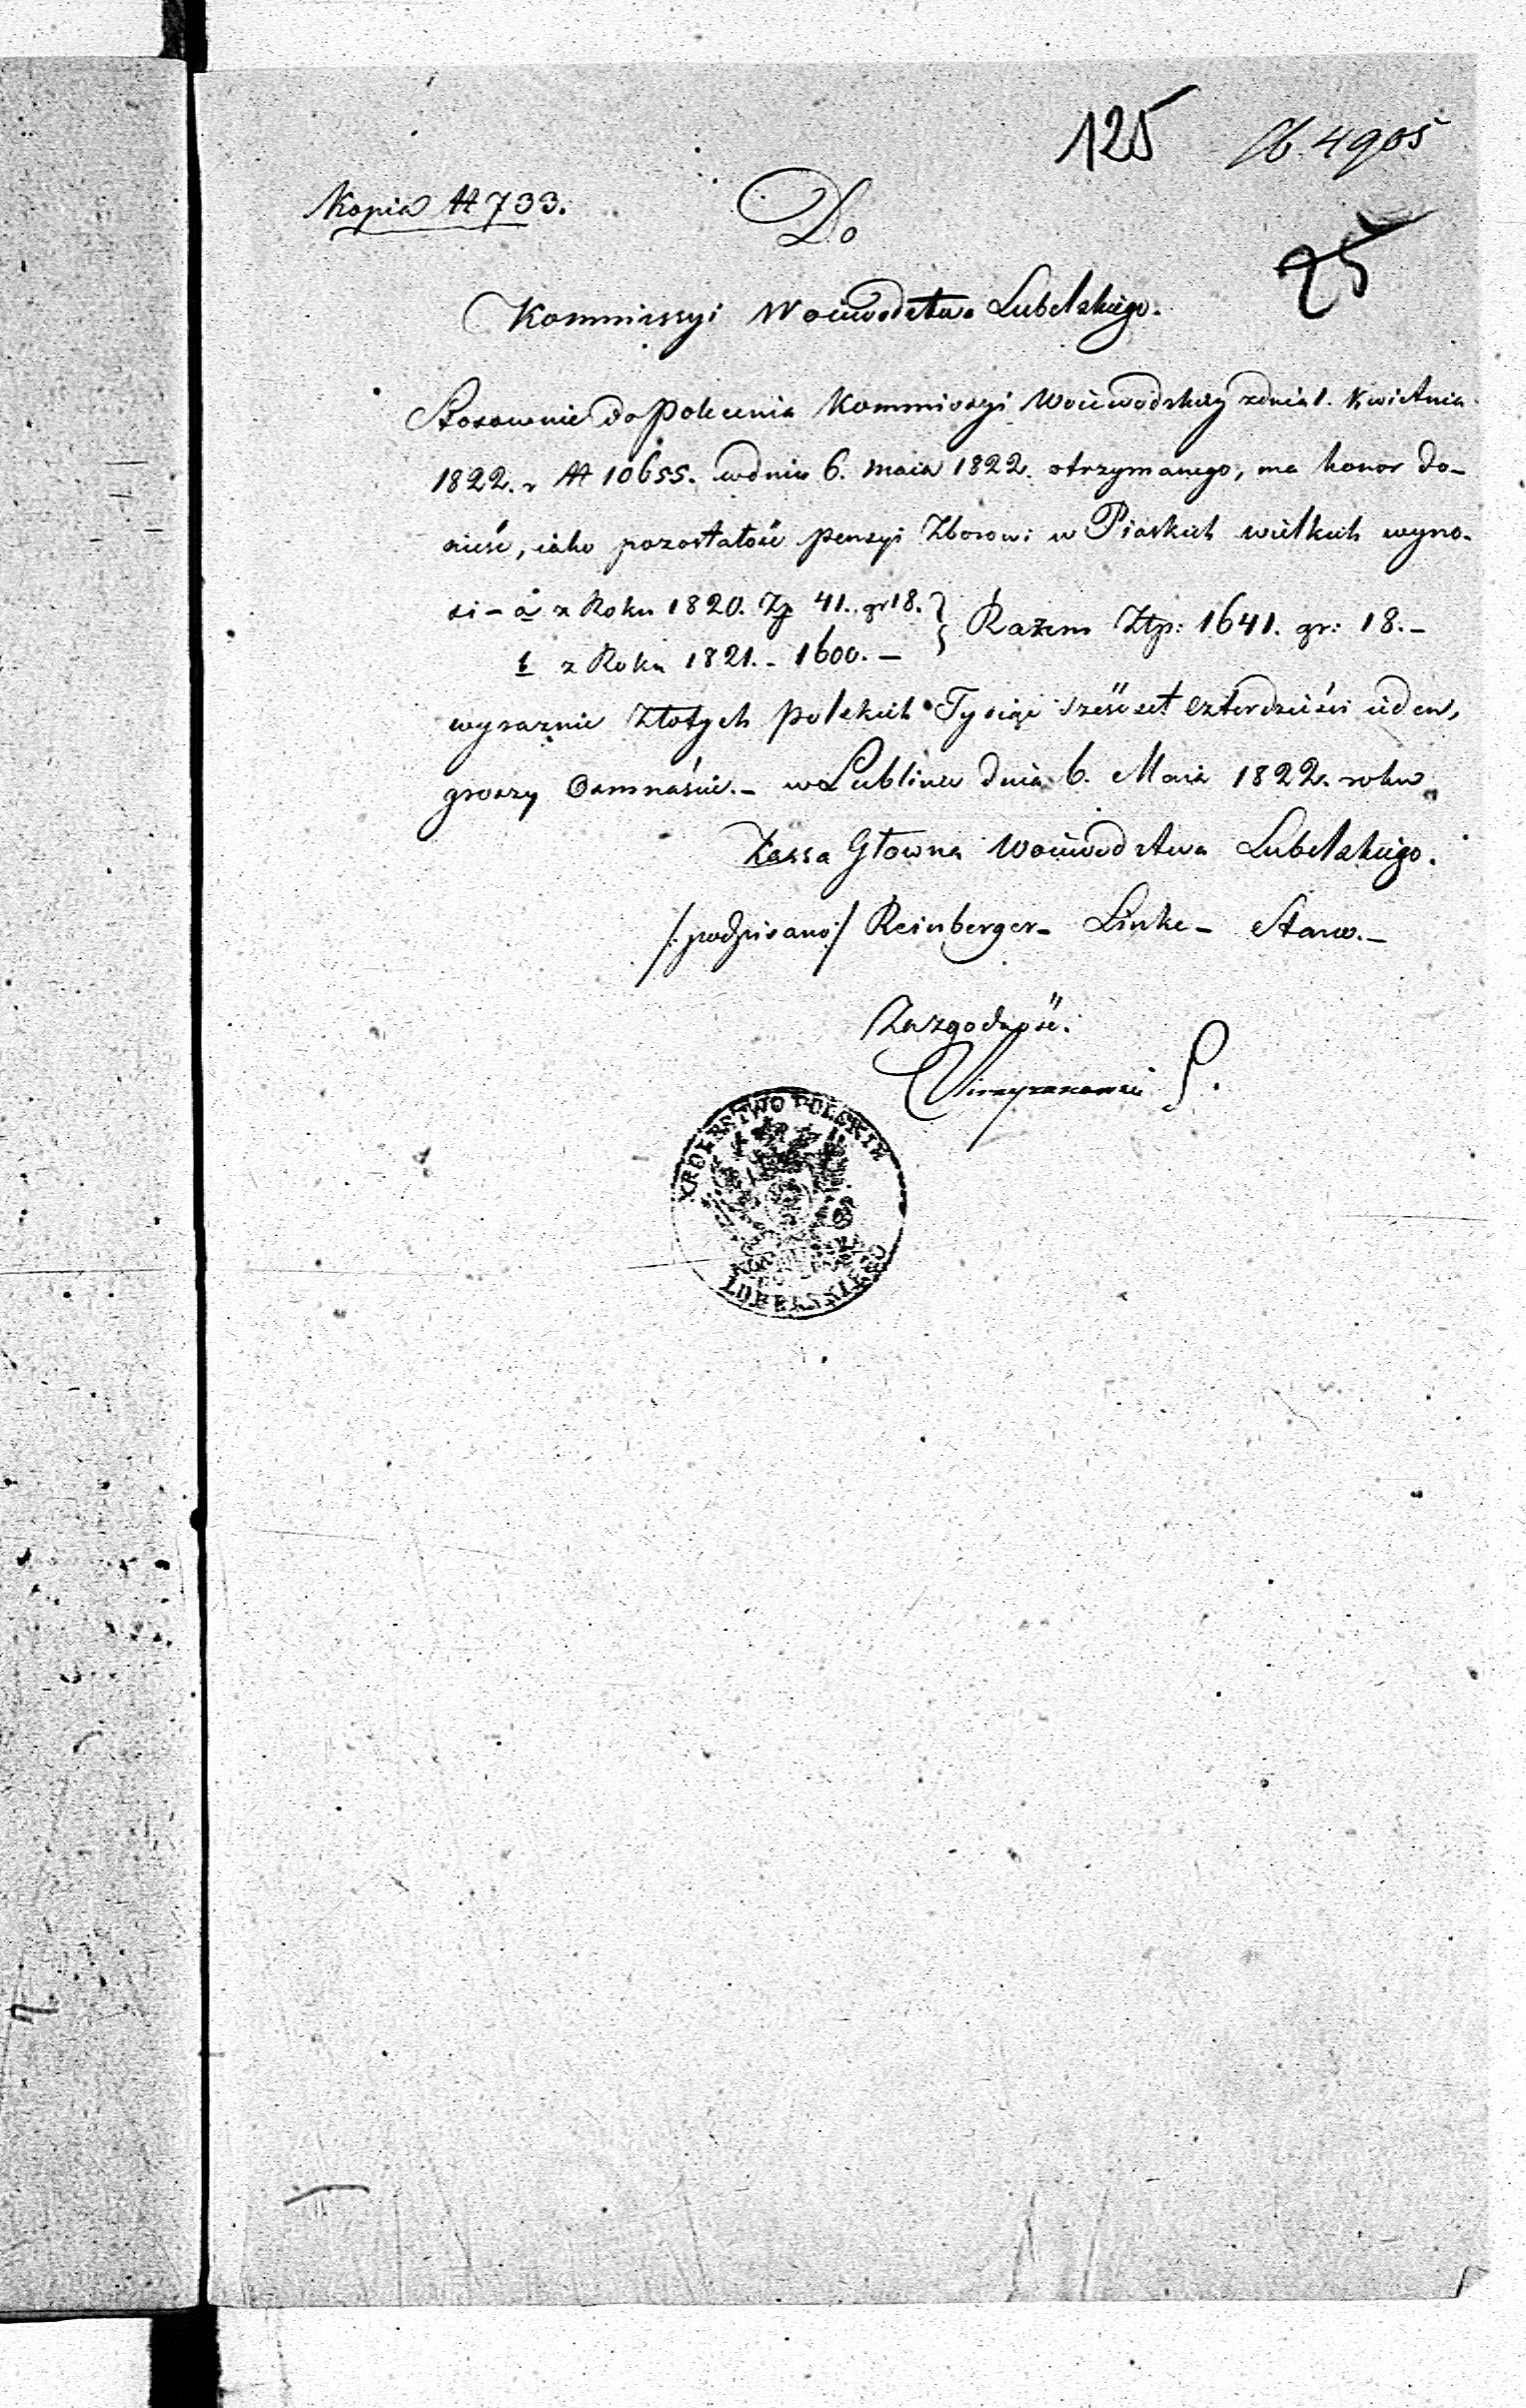 125 4905
Kopia № 733.
Do
25
Kommissyi Woiewodztwa Lubelskiego.
Stosownie do polecenia Kommissyi Woiewodzkiey z dnia 1. Kwietnia
1822. r № 10655. w dniu 6. Maia 1822. otrzymanego, ma honor do-
nieść, iako pozostałość pensyi Zborowi w Piaskich wielkich wyno-
si - a z Roku 1820. Zp 41. gr 18. } Razem Ztp: 1641. gr: 18. -
z Roku 1821. - 1600. -
wyraznie Złotych polskich Tysiąc sześćset czterdzieści ieden,
groszy Osmnaście. - w Lublinie dnia 6. Maia 1822. roku
Kassa Głowna Woiewodztwa Lubelskiego.
/:podpisano:/ Reinberger - Linke -
Za zgodność.
KROLESTWO POLSKIE
LUBELSKIEGO